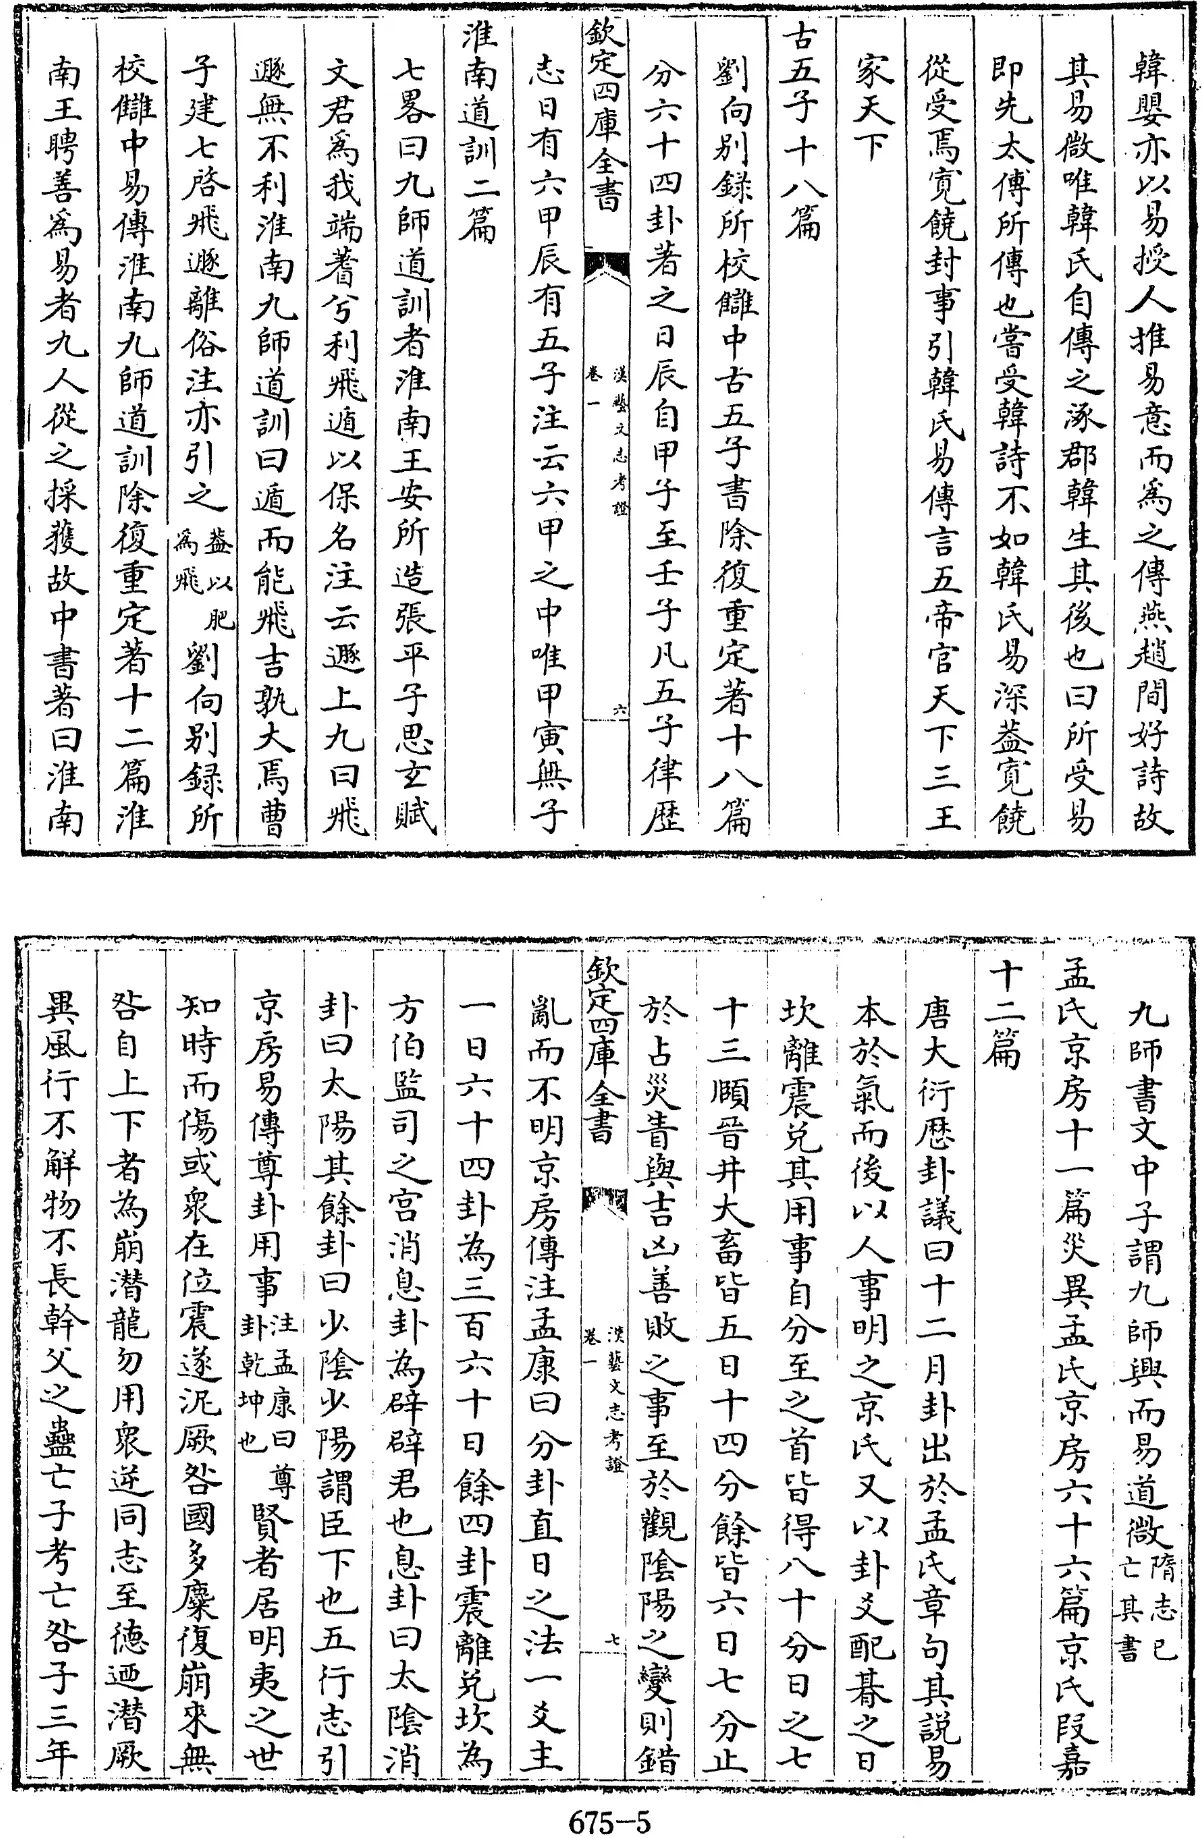 韓嬰亦以易授人推易意而為之傳燕趙間好詩故
其易微唯韓氏自傳之涿郡韓生其後也曰所受易
即先太傅所傳也嘗受韓詩不如韓氏易深葢寛饒
從受焉寛饒封事引韓氏易傳言五帝官天下三王
家天下
古五子十八篇
劉向别録所校讎中古五子書除復重定著十八篇
分六十四卦著之日辰自甲子至壬子凡五子律歴
欽定四庫全書
漢藝文志考證
卷一
六
志日有六甲辰有五子注云六甲之中唯甲寅無子
淮南道訓二篇
七畧曰九師道訓者淮南王安所造張平子思𤣥賦
文君為我端蓍兮利飛遁以保名注云遯上九曰飛
遯無不利淮南九師道訓曰遁而能飛吉孰大焉曹
子建七啓飛遯離俗注亦引之
葢以肥
為飛
劉向别録所
校讎中易傳淮南九師道訓除復重定著十二篇淮
南王聘善為易者九人從之採獲故中書著曰淮南
九師書文中子謂九師興而易道微
隋志已
亡其書
孟氏京房十一篇災異孟氏京房六十六篇京氏段嘉
十二篇
唐大衍歴卦議曰十二月卦出於孟氏章句其説易
本於氣而後以人事明之京氏又以卦爻配朞之日
坎離震兌其用事自分至之首皆得八十分日之七
十三頤晉井大畜皆五日十四分餘皆六日七分止
於占災眚與吉凶善敗之事至於觀陰陽之變則錯
欽定四庫全書
漢藝文志考證
卷一
七
亂而不明京房傳注孟康曰分卦直日之法一爻主
一日六十四卦為三百六十日餘四卦震離兌坎為
方伯監司之官消息卦為辟辟君也息卦曰太陰消
卦曰太陽其餘卦曰少陰少陽謂臣下也五行志引
京房易傳尊卦用事
注孟康曰尊
卦乾坤也
賢者居明夷之世
知時而傷或衆在位震遂泥厥咎國多麋復崩來無
咎自上下者為崩潛龍勿用衆逆同志至徳廼潛厥
異風行不解物不長幹父之蠱亡子考亡咎子三年
675-5